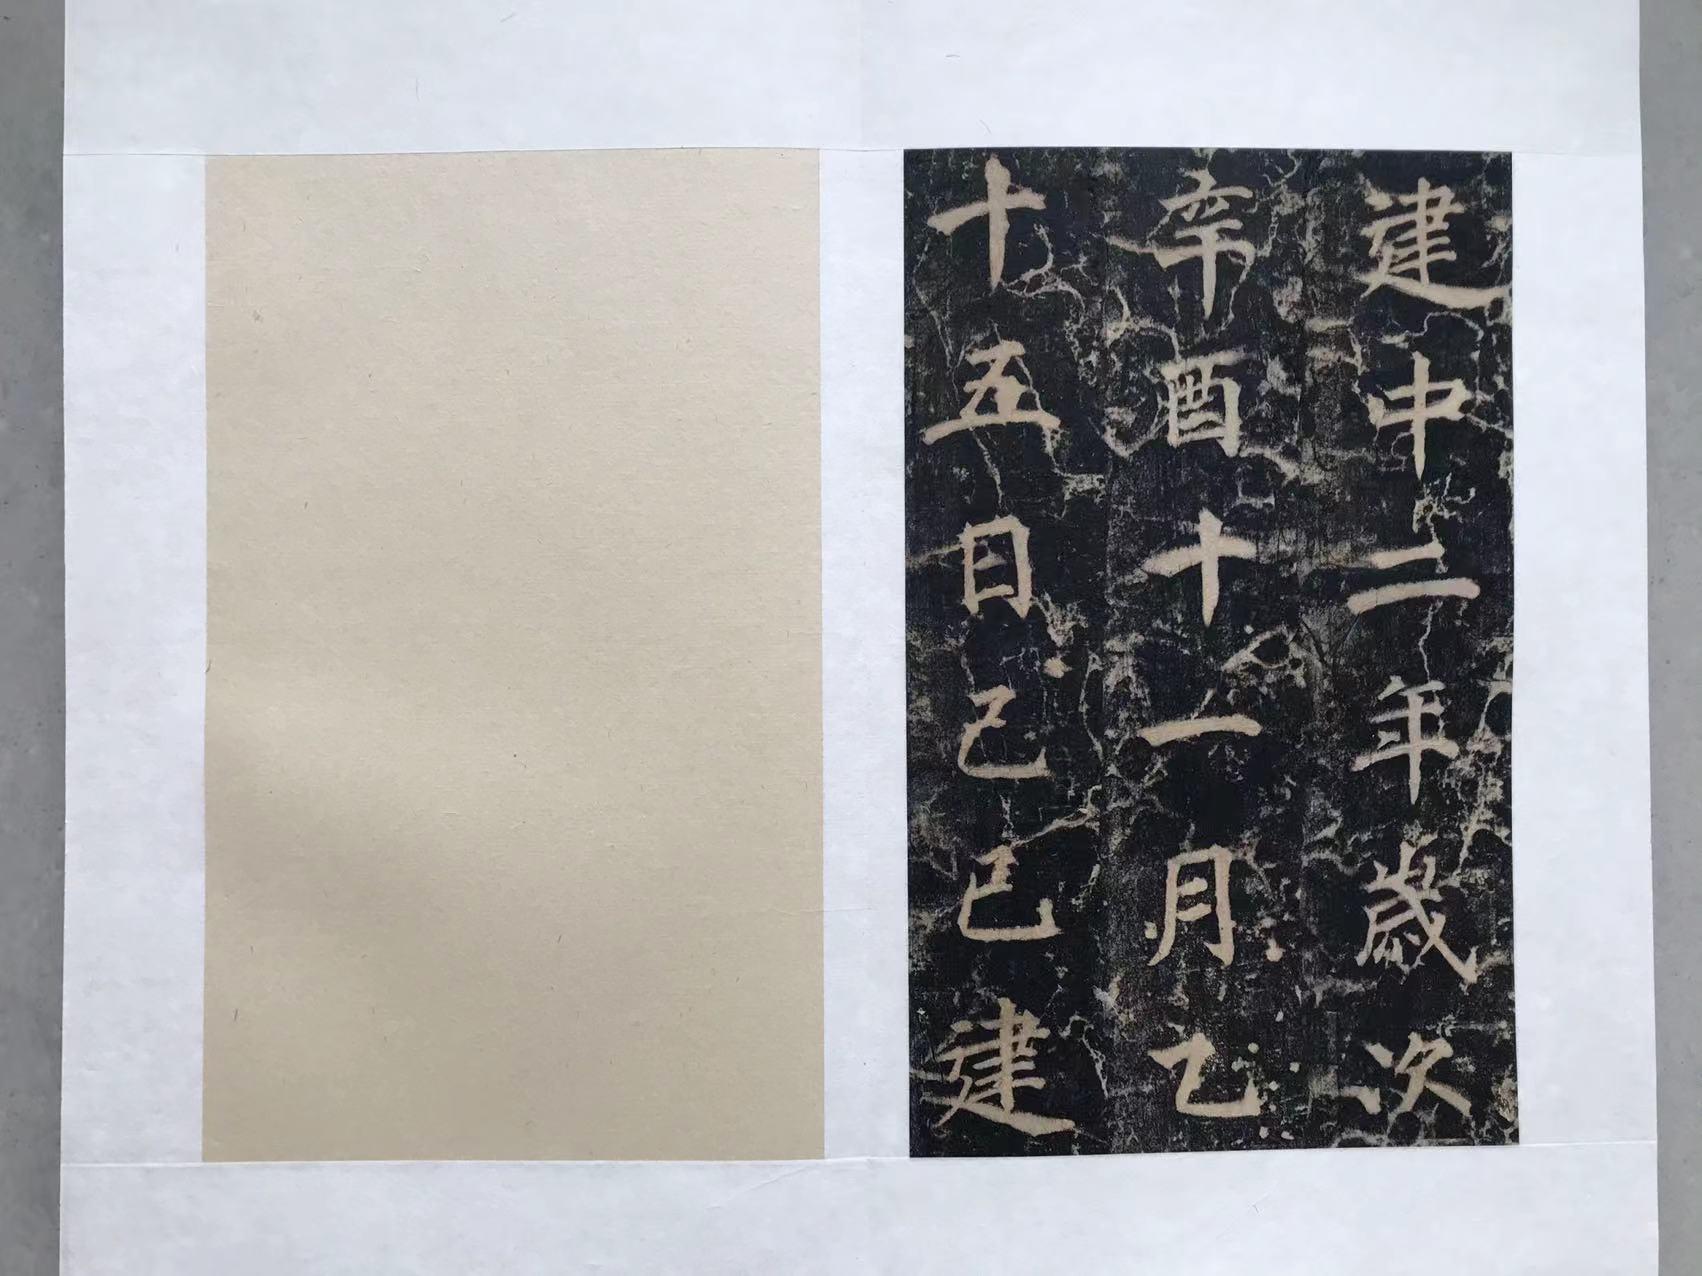 建中二年歲次
辛酉十一月乙
十五日己巳建